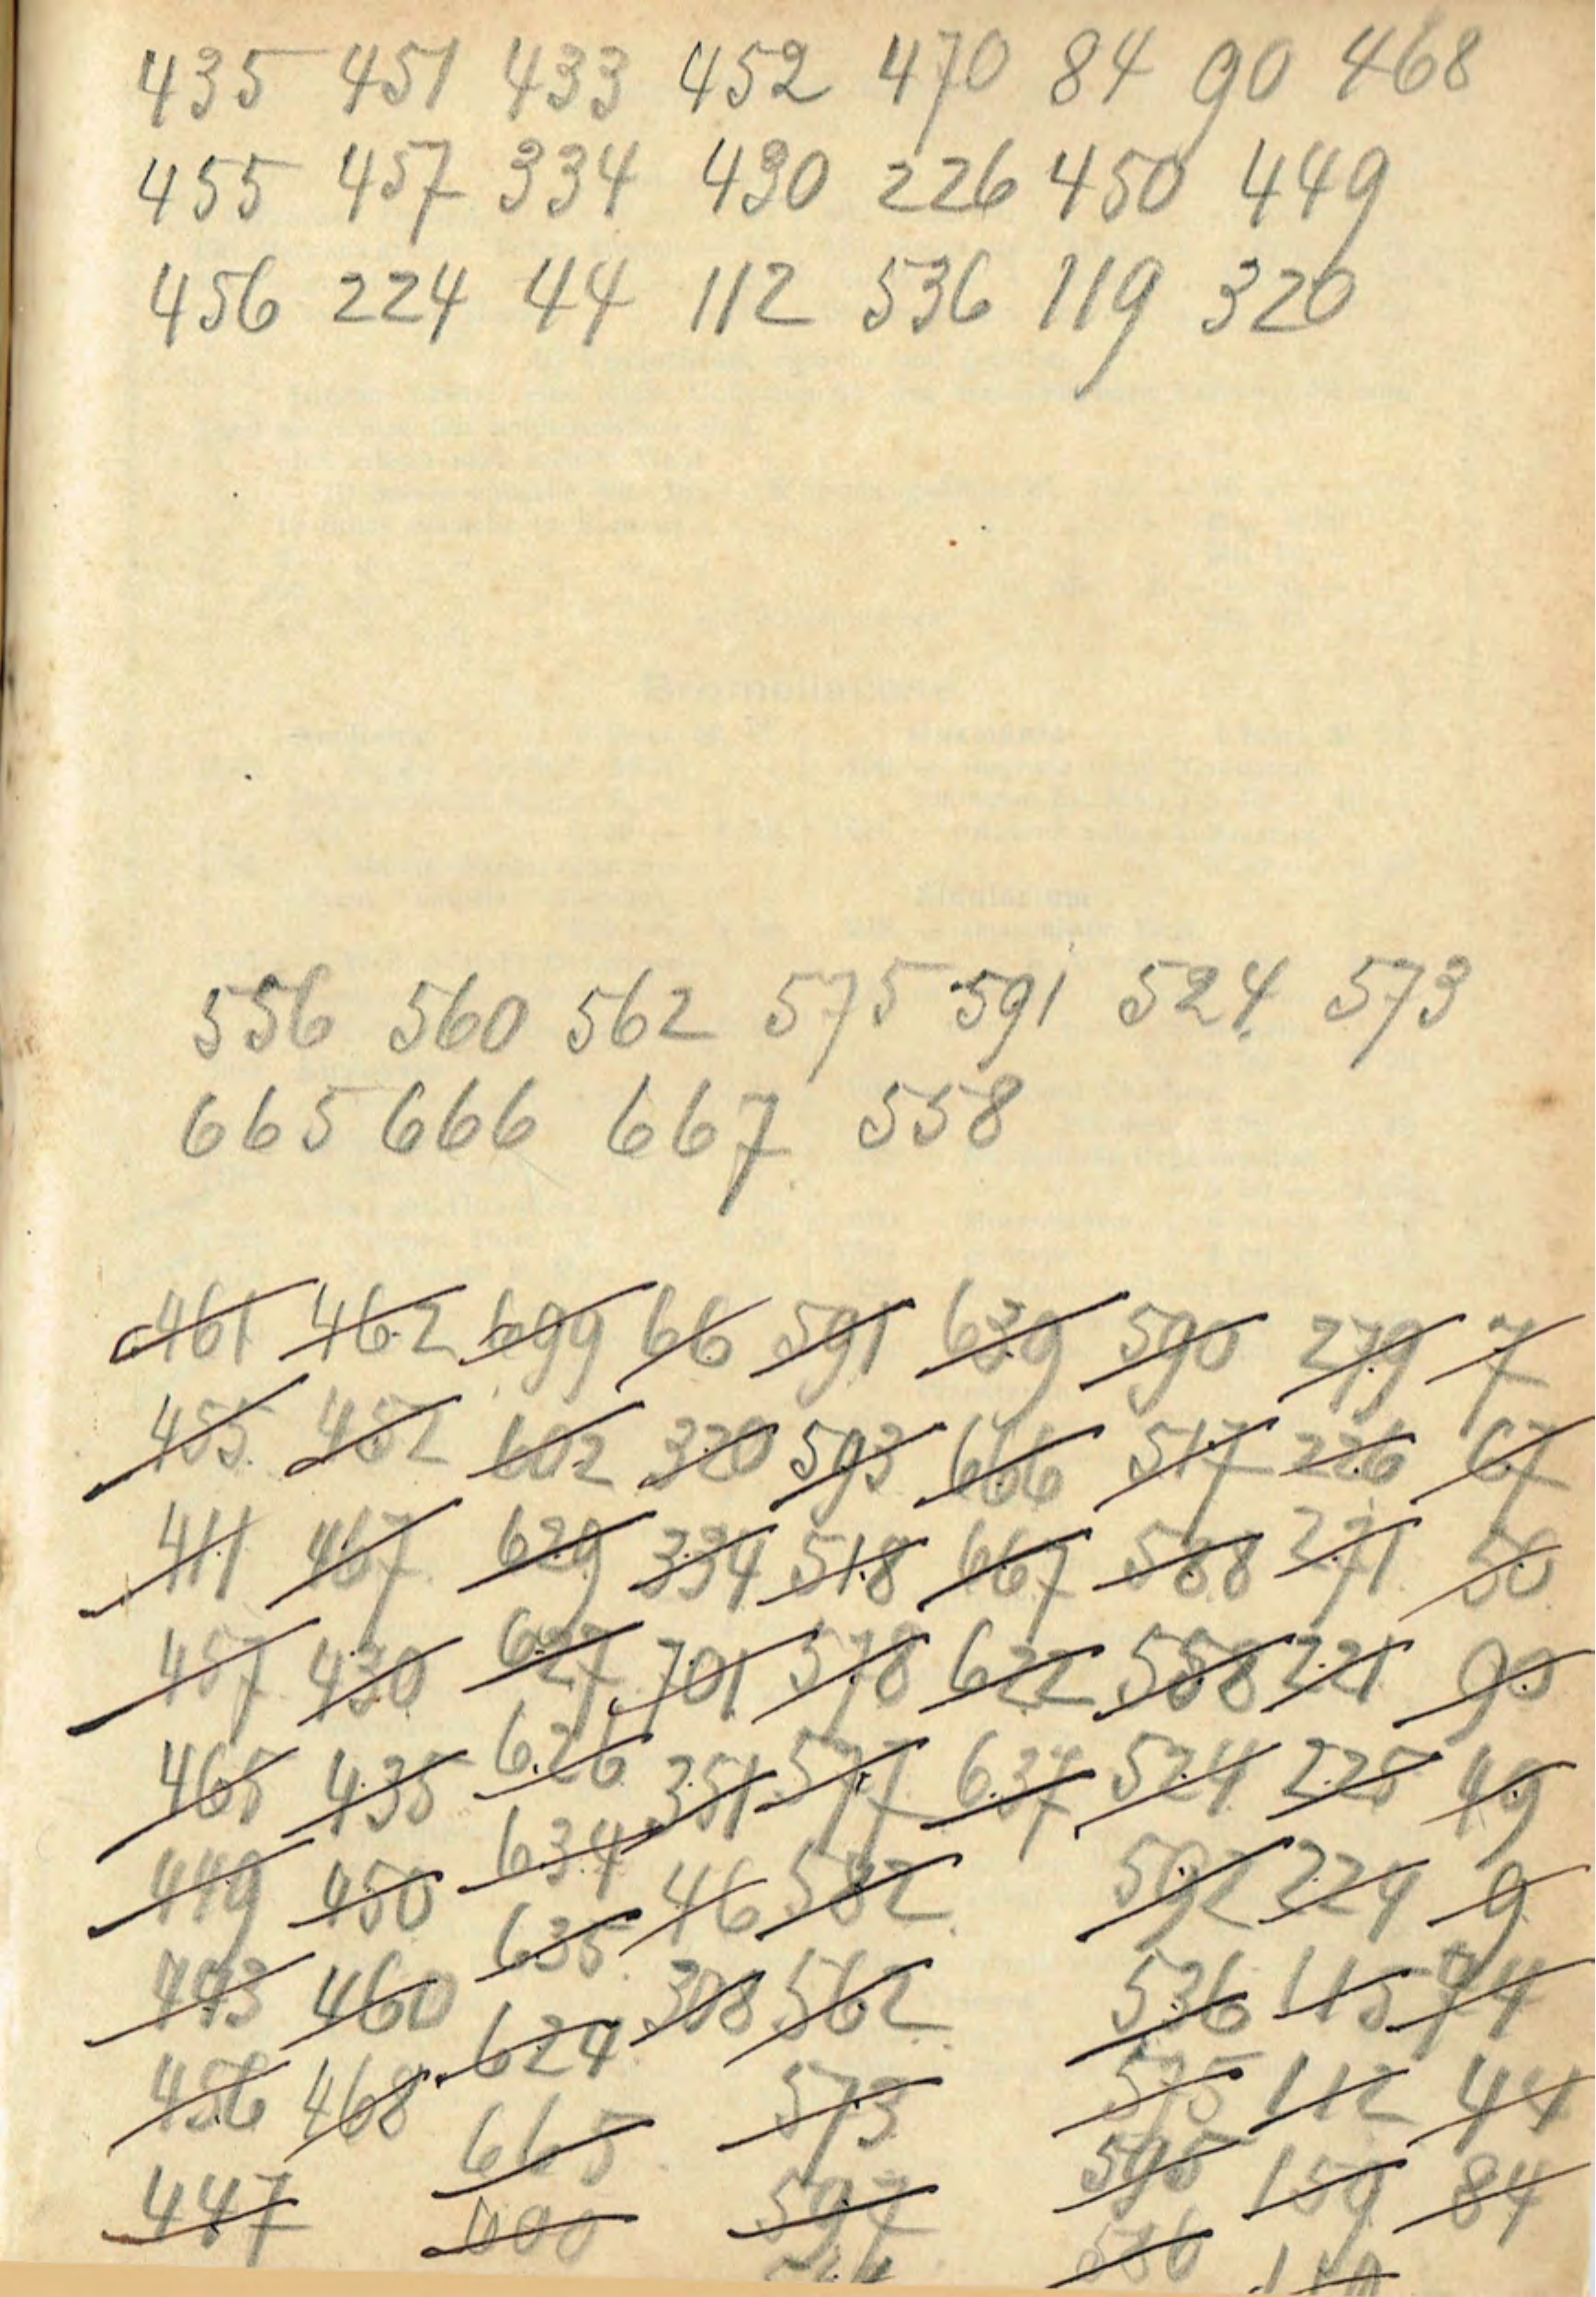 435 451 433 452 470 84 90 468
455 457 334 430 226 450 449
456 224 44 112 536 119 320
556 560 562 575 591 524 573
665 666 667 558
461 462 699 66 591 639 590 279 7
455 452 602 320 593 666 517 226 67
411 467 629 334 518 667 588 271 50
457 430 627 701 578 622 558 221 90
465 435 626 351 577 637 524 225 49
449 450 634 46 582 592 224 9
443 460 635 318 562 536 115 74
456 468 624 573 575 112 44
447 665 597 595 159 84
586